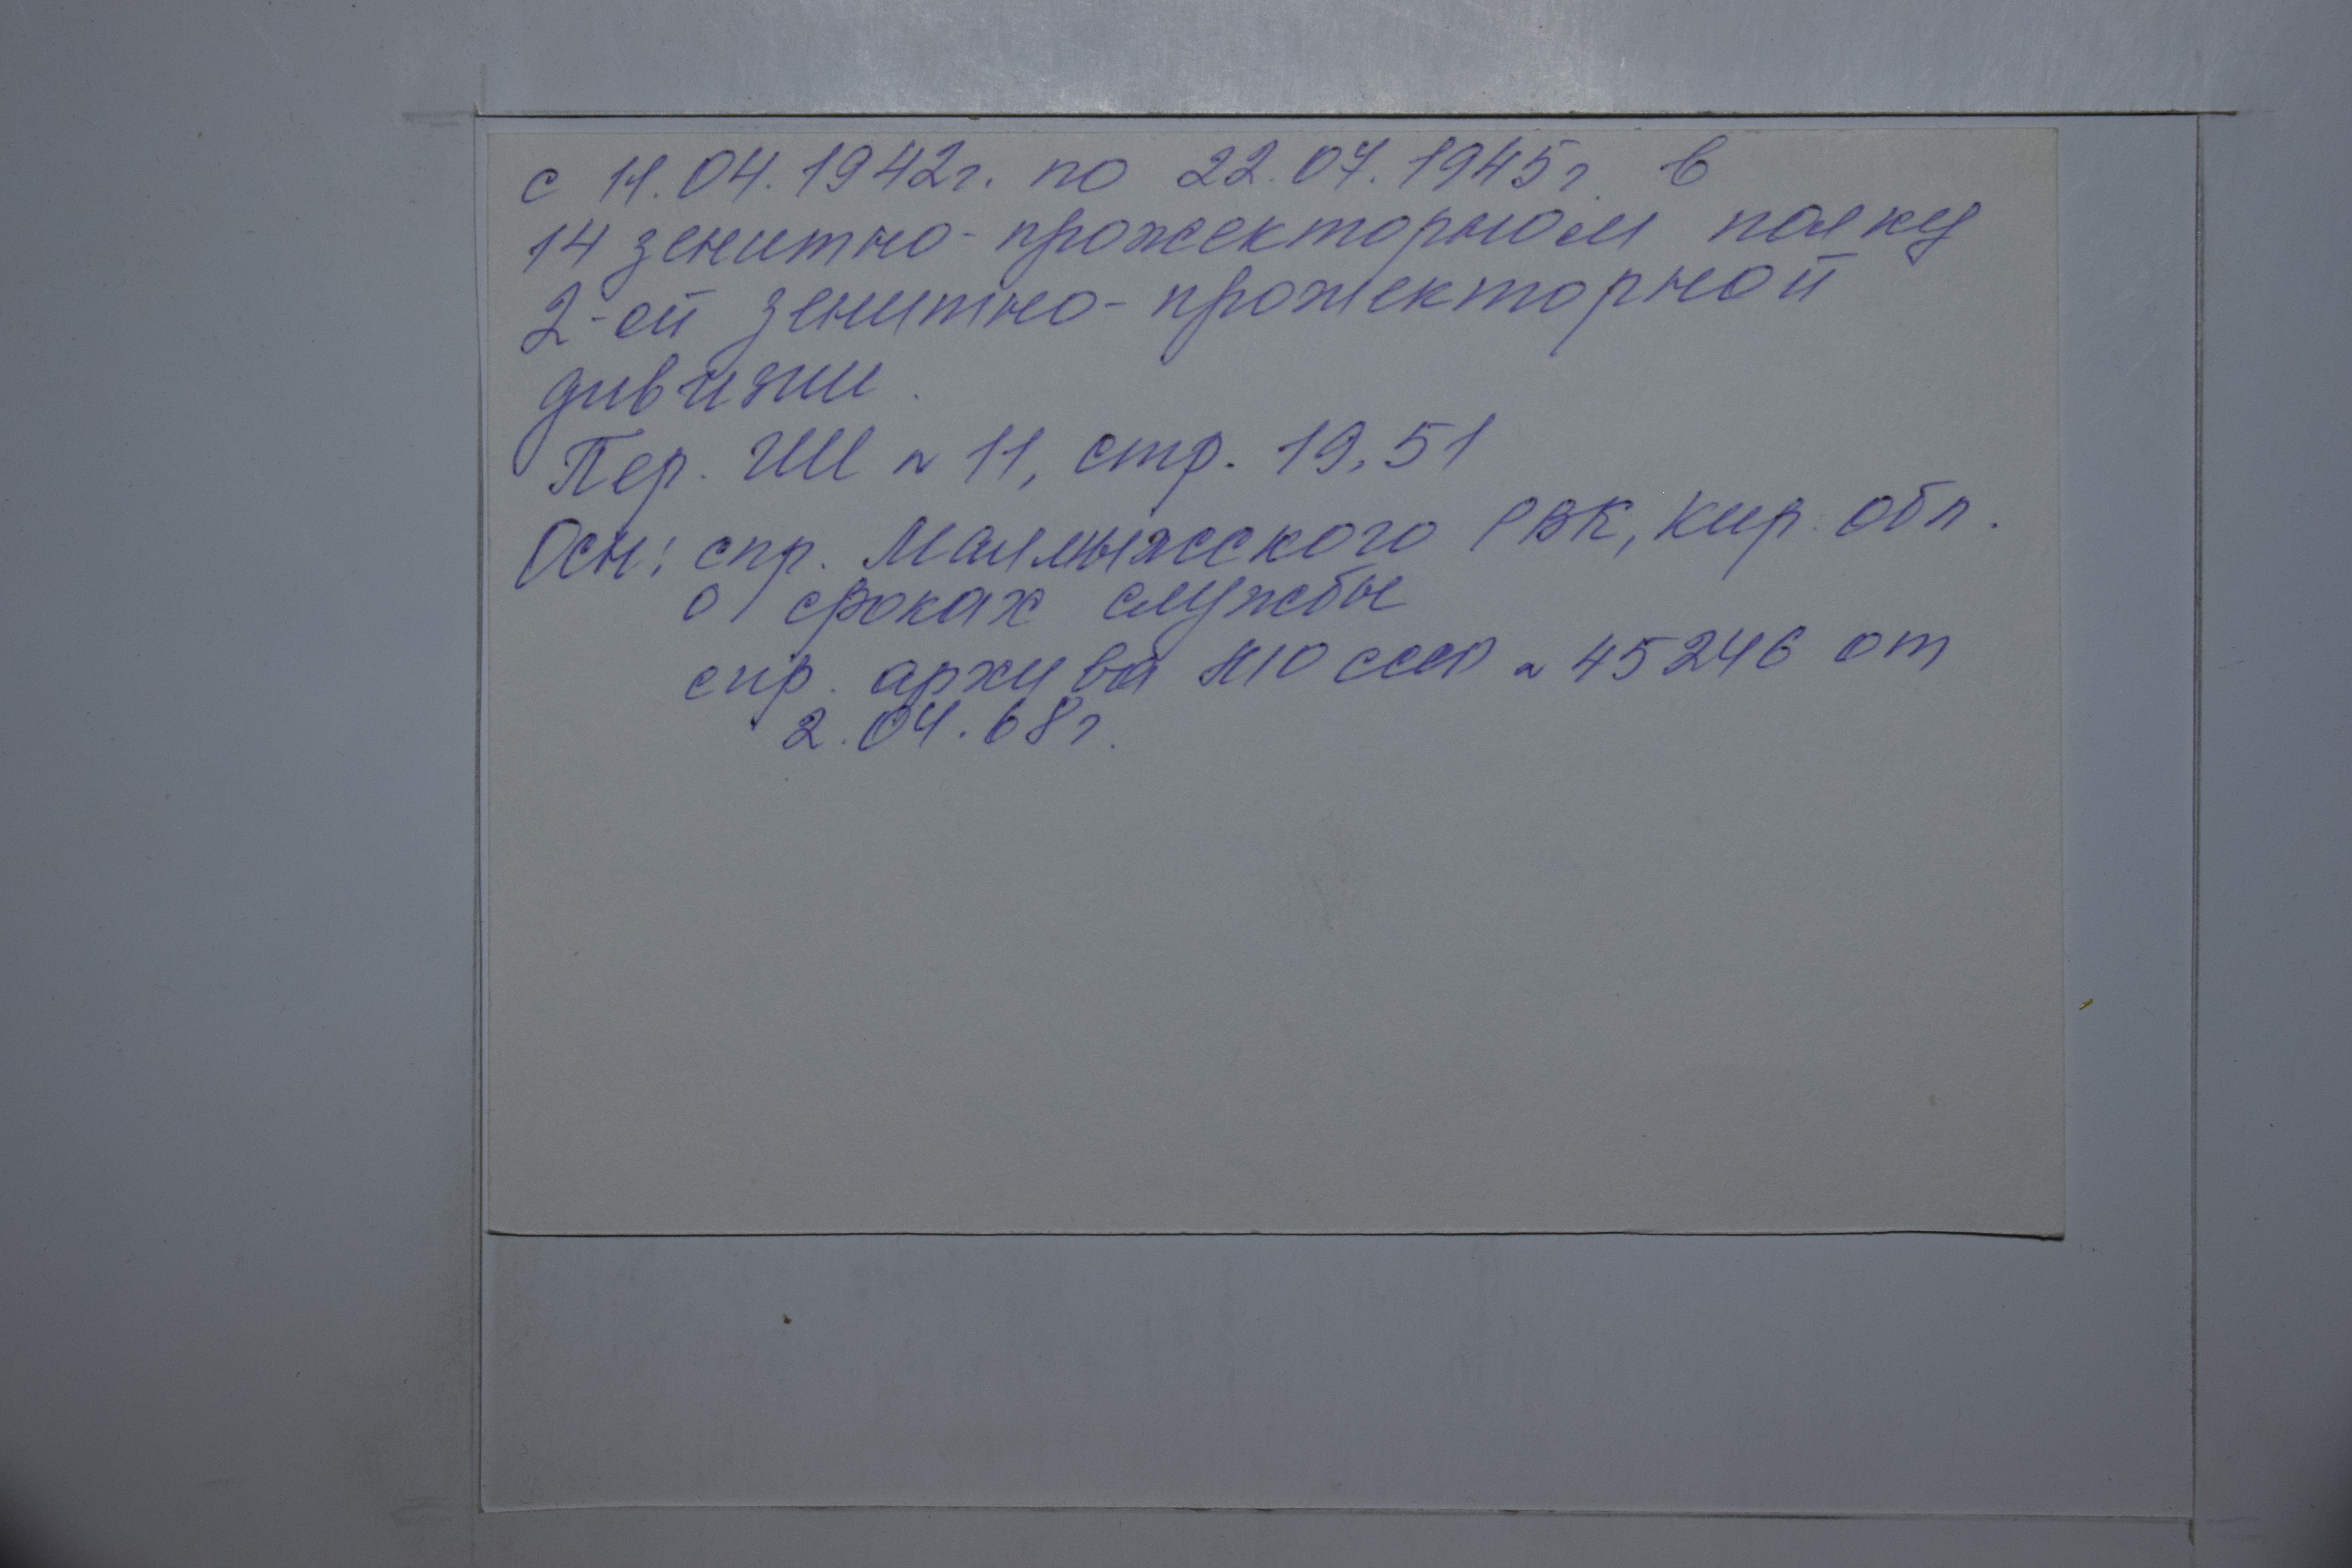 с 11.04.1942г. по 22.07.1945г. в
14 зенитно-прожекторном полку
2-ой зенитно-прожекторной
дивизии.
Пер. ГШ № 11, стр. 19, 51
Осн: спр. Малмыжского РВК, Кир. обл.
о сроках службы
спр. архива МО СССР № 45246 от
2.04.68г.